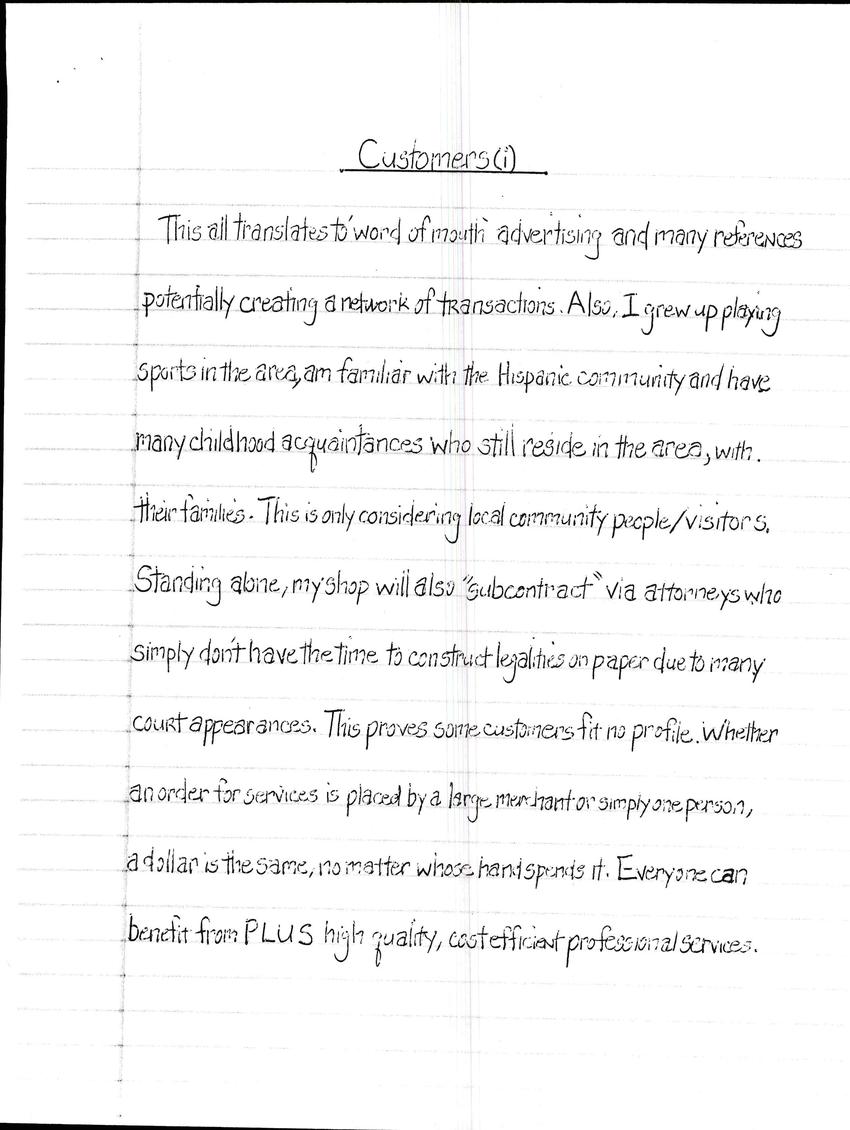 Customers(i)
This all translates to 'word of mouth' advertising and many references
potentially creating a network of transactions. Also, I grew up playing
sports in the area, am familiar with the Hispanic community and have
many childhood acquaintances who still reside in the area, with.
their families. This is only considering local community people/visitors.
Standing alone, my shop will also "subcontract" via attorneys who
simply don't have the time to construct legalities on paper due to many
court appearances. This proves some customers fit no profile. Whether
an order for services is placed by a large merchant or simply one person,
a dollar is the same, no matter whose hand spends it. Everyone can
benefit from PLUS high quality, cost efficient professional services.